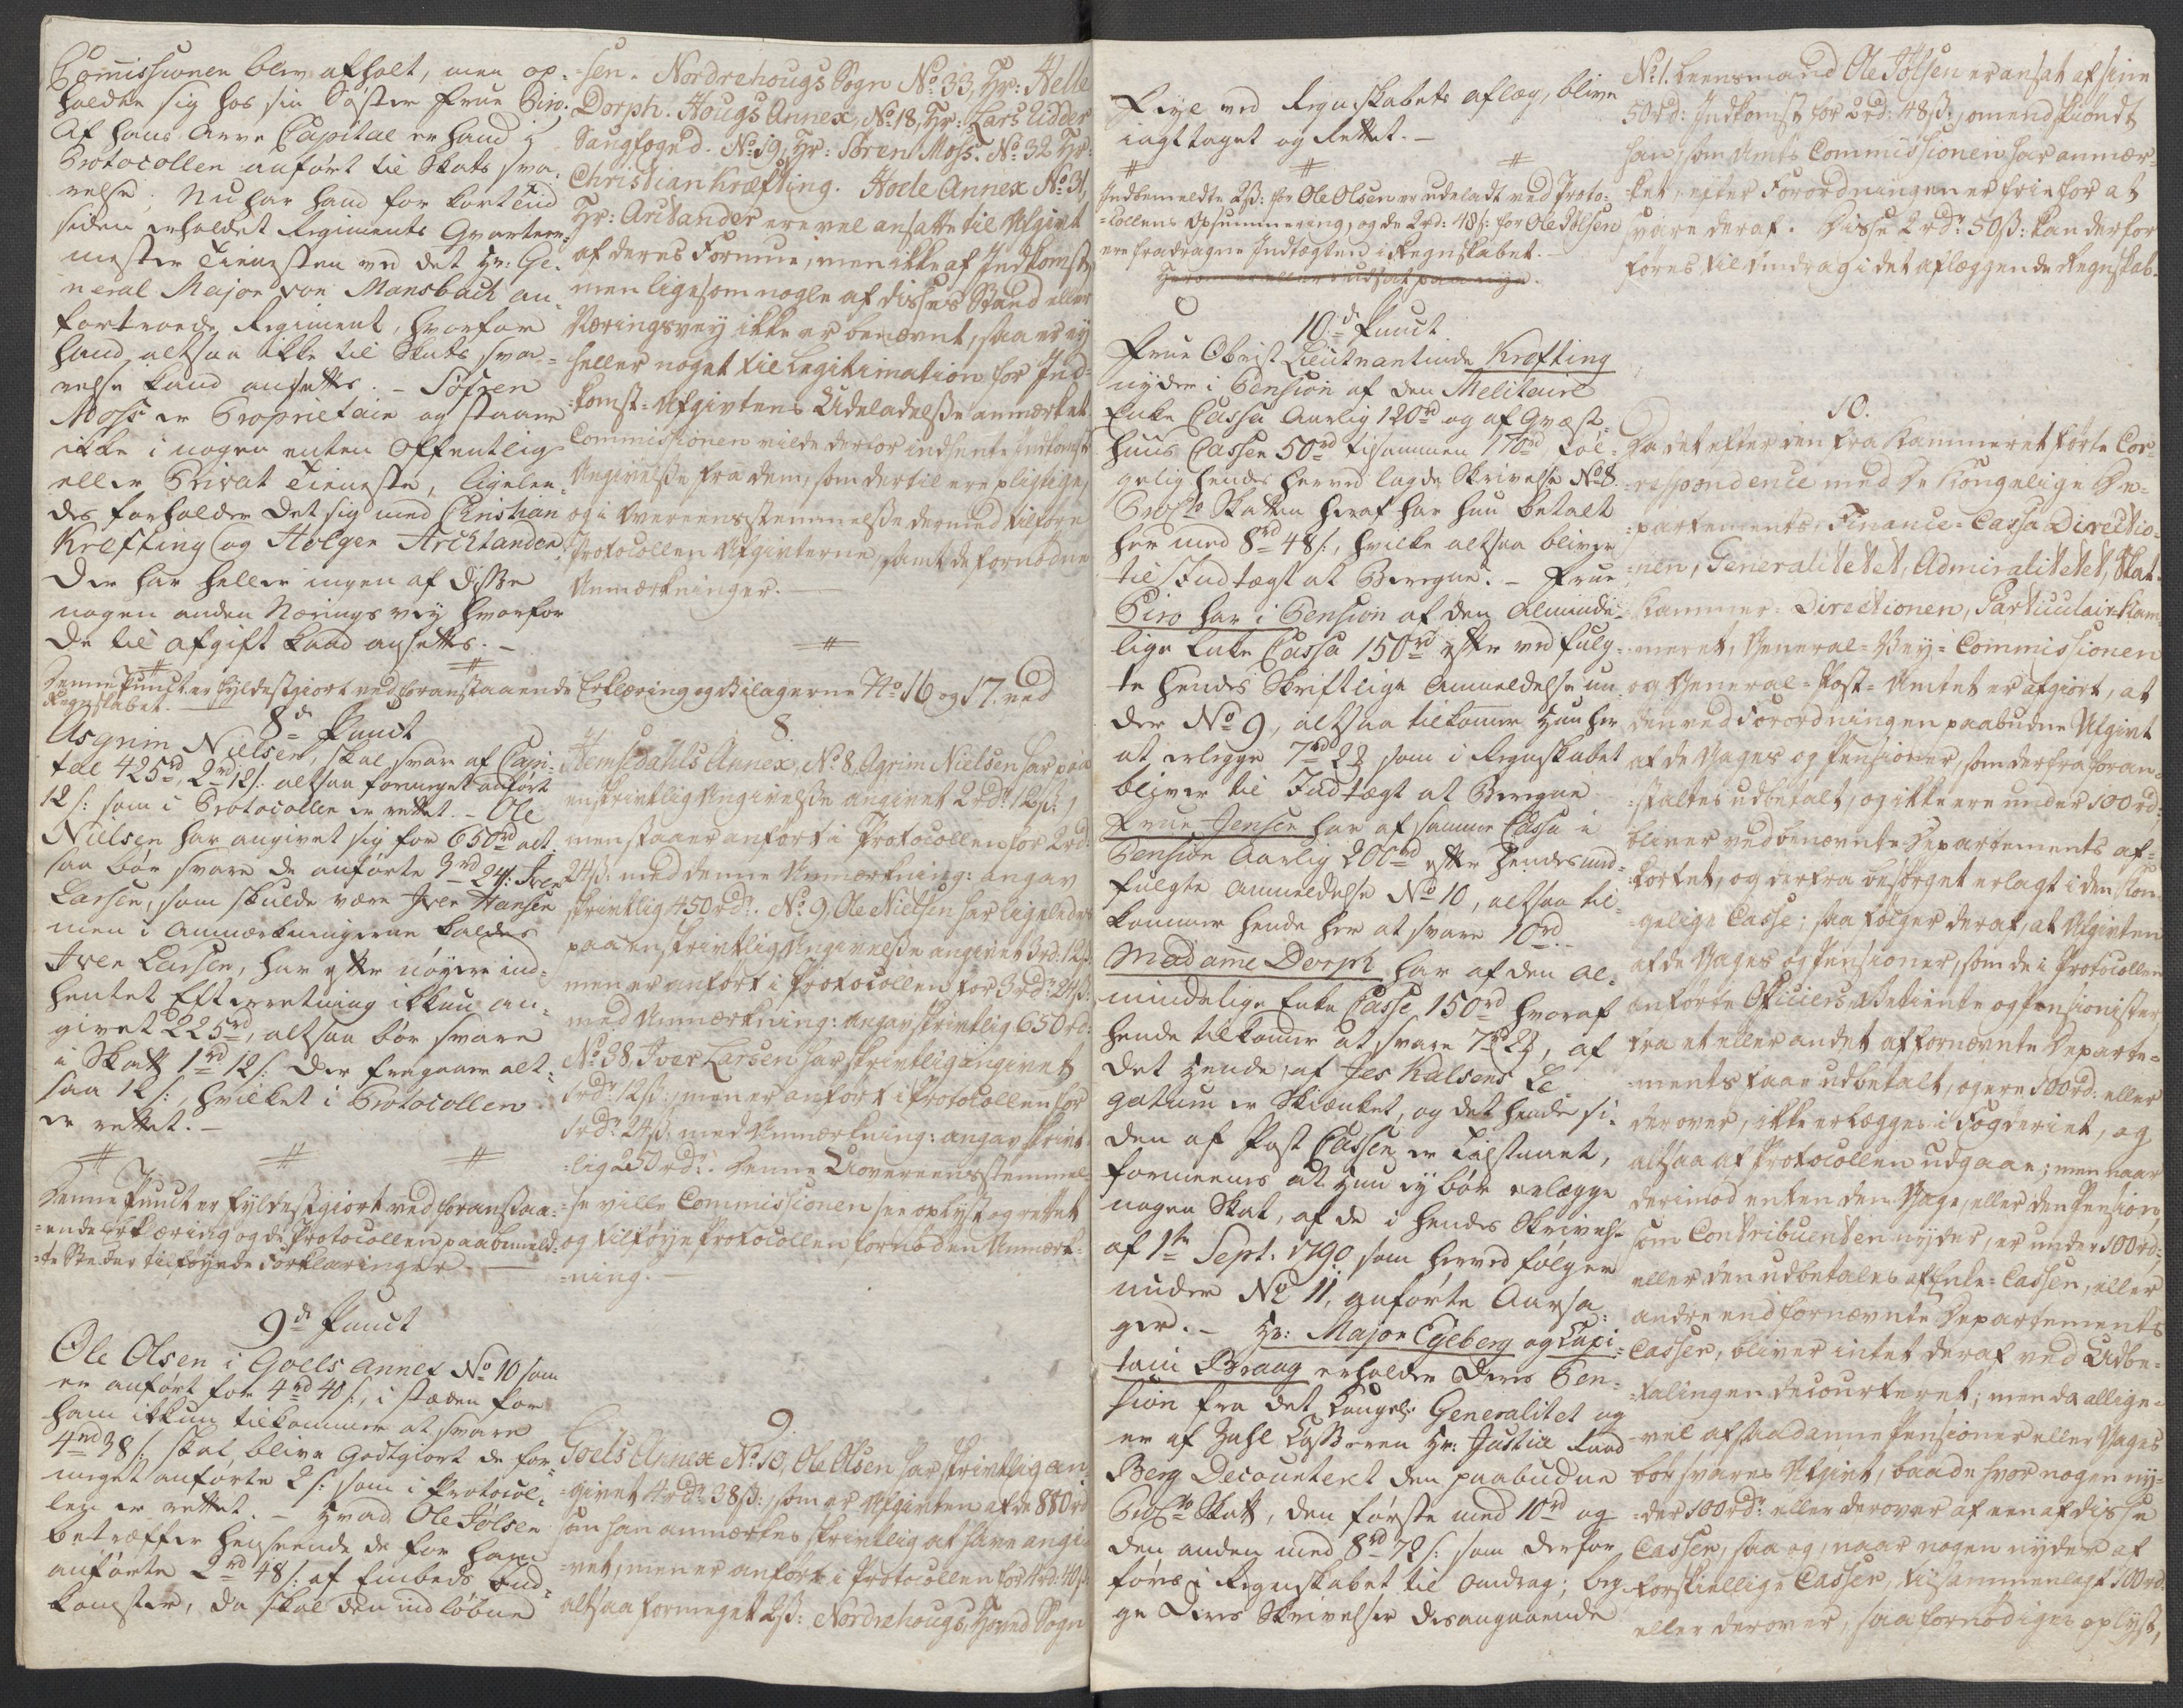 Commissionen blev afholt, men op-
holder sig hos sin Søster Frue Biro.
Af hans Arve Capital er hand i
Protocollen anført til Skats sva-
relse; Nu har hand for kort tiid
siden erholdet Regiments Qvarteer-
mester Tienesten ved det Hr: Ge-
neral Major von Mansbach an-
fortroede Regiment, hvorfor
hand altsaa ikke til Skats sva-
relse kand ansættes. - Søfren
Moss er Proprietair og staaer
ikke i nogen enten Offentlig
eller Privat Tieneste, ligelee-
des forholder det sig med Christian
Krefting og Holger Arctander.
Der har heller ingen af disse
nogen anden Nærings vey hvorfor
de til afgift kand ansættes. -
Denne Punct er fyldestgiort ved foranstaaende Erklæring og Bilagerne No 16 og 17. ved
Regnskabet.
8de Punct
Asgrim Nielsen, skal svare af Capi-
tal 425rd, 2rd 12s: altsaa formeget anført
12s: som i Protocollen er rettet. - Ole
Nielsen har angivet sig for 650rd alt-
saa bør svare de anførte 3rd 24s: Iver
Larsen, som skulde være Iver Hansen
men i Anmærkningerne kaldes
Iver Larsen, har efter nøyere ind-
hentet Efterretning ikkun an-
givet 225rd, altsaa bør svare
i Skatt 1rd 12s: der fragaaer alt-
saa 12s:, hvilket i Protocollen
er rettet. -
Denne Punct er fyldestgiort ved foranstaa-
=ende Erklæring og de i Protocollen paabemeld-
=te Steder tilføyede Forklaringer.
9de Punct
Ole Olsen i Goels Annex No 10 som
er anført for 4rd 40s:, i stæden for
ham ikkun tilkommer at svare
4rd 38s: skal blive Godtgiort de for-
meget anførte 2s: som i Protocol-
len er rettet. - Hvad Ole Jølsen
betræffer henseende de for ham
anførte 2rd 48s: af Embeds Ind-
komster, da skal den indløbne
-sen. Nordrehougs Sogn No 33, Hr: Helle
Dorph. Hougs Annex, No 18, Hr: Lars Udder
Saugfoged. No 19, Hr: Søren Moss. No 32 Hr:
Christian Kræfting. Hoele Annex No 31,
Hr: Arctander ere vel ansatte til Afgivt
af deres Formue, men ikke af Indkomst,
men ligesom nogle af disses Stand eller
Næringsvey ikke er benævnt, saa er ey
heller noget til Legitimation for Ind-
=komst-Afgivtens Udeladelse anmærket.
Commissionen vilde derfor indhente Indkomst
Angivelse fra dem, som dertil ere pligtige,
og i Overeensstemmelse dermed tilføye
Protocollen Afgivterne, samt de fornødne
Anmærkninger.
8.
Hemsedahls Annex, No 8, Agrim Nielsen har paa
en skrivtlig Angivelse angivet 2rdr 12s:,
men staaer anført i Protocollen for 2rd:
24s: med denne Anmærkning: angav
skrivtlig 450rdr. No 9. Ole Nielsen har ligeledes
paa en skrivtlig Angivelse angivet 3rd: 12s:
men er anført i Protocollen for 3rdr 24s:
med Anmærkning: angav skrivtlig 650rd:
No 38 Iver Larsen har skrivtlig angivet
1rdr 12s:, men er anført i Protocollen for
1rdr 24s: med Anmærkning: angav skrivt-
=lig 250rdr. Denne Uovereensstemmel-
-se ville Commissionen see oplyst og rettet
og tilføye Protocollen fornøden Anmærk-
=ning.
9.
Goels Annex No 10, Ole Olsen har skrivtlig an-
=givet 4rdr 38s:, som er Afgivten af de 880rd
som han anmærkes skrivtlig at have angi-
=vet, men er anført i Protocollen for 4rd: 40s:
altsaa formeget 2s: Nordrehougs Hoved Sogn
Feyl ved Regnskabets aflæg, blive
iagttaget og Rettet. -
Indbemeldte 2s: for Ole Olsen er udeladt ved Proto-
=collens Opsummering, og de 2rd: 48s: for Ole Jølsen
ere fradragne Indtægten i Regnskabet.
10de Punct
Frue Obrist Lieutnantinde Krefting
nyder i Pension af den Melitaire
Enke Cassa Aarlig 120rd og af Qvæst-
huus Cassen 50rd tilsammen 170rd føl-
gelig hendes herved lagde Skrivelse No 8.
Procto Skatten heraf har hun betalt
her med 8rd 48s:, hvilke altsaa bliver
til Indtægt at Beregne. - Frue
Biro har i Pension af den Alminde-
lige Enke Cassa 150rd efter ved fulg-
te hendes Skriftlige Anmeldelse un-
der No 9, altsaa tilkommer Hun her
at erlegge 7rd 2ß som i Regnskabet
bliver til Indtægt at Beregne
Frue Jensen har af samme Cassa i
Pension Aarlig 200rd efter Hendes med-
fulgte Anmeldelse No 10, altsaa til-
kommer hende her at svare 10rd. -
Madame Dorph har af den al-
mindelige Enke Casse 150rd hvoraf
hende tilkommer at svare 7rd 2ß, af
det Hende, af Jes Kalsens Le-
gatum er Skienket, og det hende si-
den af Post Cassen er tilstaaet,
formeenes at Hun ey bør erlægge
nogen Skat, af de i hendes Skrivelse
af 1ste Sept: 1790 som herved følger
under No 11, anførte Aarsa-
ger. - Hr: Major Egeberg og Capi-
tain Braag erholder deres Pen-
sion fra det Kongel: Generalitet og
er af Zahl Casseren Hr: Justice Raad
Berg Decourteret den paabudne
Procto Skatt, den første med 10rd og
den anden med 8rd 72s: som derfor
føres i Regnskabet til Omdrag; beg-
ge deres Skrivelser desangaaende
No 1. Leensmand Ole Jølsen er ansat af sine
50rd: Indkomst for 2rd: 48s:, omendskiøndt
han, som Amts Commissionen har anmær-
ket, efter Forordningen er frie for at
svare deraf. Disse 2rdr 50s: kan derfor
føres til Omdrag i det aflæggende Regnskab.
10.
Da det efter den fra Kammeret førte Cor-
=respondence med De Kongelige De-
=partementer, Finance-Cassa Directio-
=nen, Generalitetet, Admiralitetet, Skat-
kammer-Directionen, Particulair-Kam-
meret, General-Vey-Commissionen
og General-Post-Amtet er afgiort, at
den ved Forordningen paabudne Afgivt
af de Gager og Pensioner, som derfra foran-
=staltes udbetalt, og ikke ere under 100rd:,
bliver ved benævnte Departements af-
=kortet, og derfra besørget erlagt i den Kon-
=gelige Casse; saa følger deraf, at Afgivten
af de Gager og Pensioner, som de i Protocollen
anførte Officiers, Betiente og Pensionister
fra et eller andet af fornævnte Departe-
ments faae udbetalt, og ere 100rd: eller
derover, ikke erlægges i Fogderiet, og
altsaa af Protocollen udgaae; men naar
derimod enten den Gage, eller den Pension,
som Contribuenten nyder, er under 100rd:,
eller den udbetales af Enke-Cassen, eller
andre end fornævnte Departements
Casser, bliver intet deraf ved Udbe-
=talingen decourteret; men da allige-
=vel af saadanne Pensioner eller Gager
bør svares Afgivt, baade hvor nogen ny-
=der 100rdr eller derover af een af disse
Casser, saa og, naar nogen nyder af
forskiellige Casser, tilsammenlagt 100rd:
eller derover, saa fornødiges oplyst,